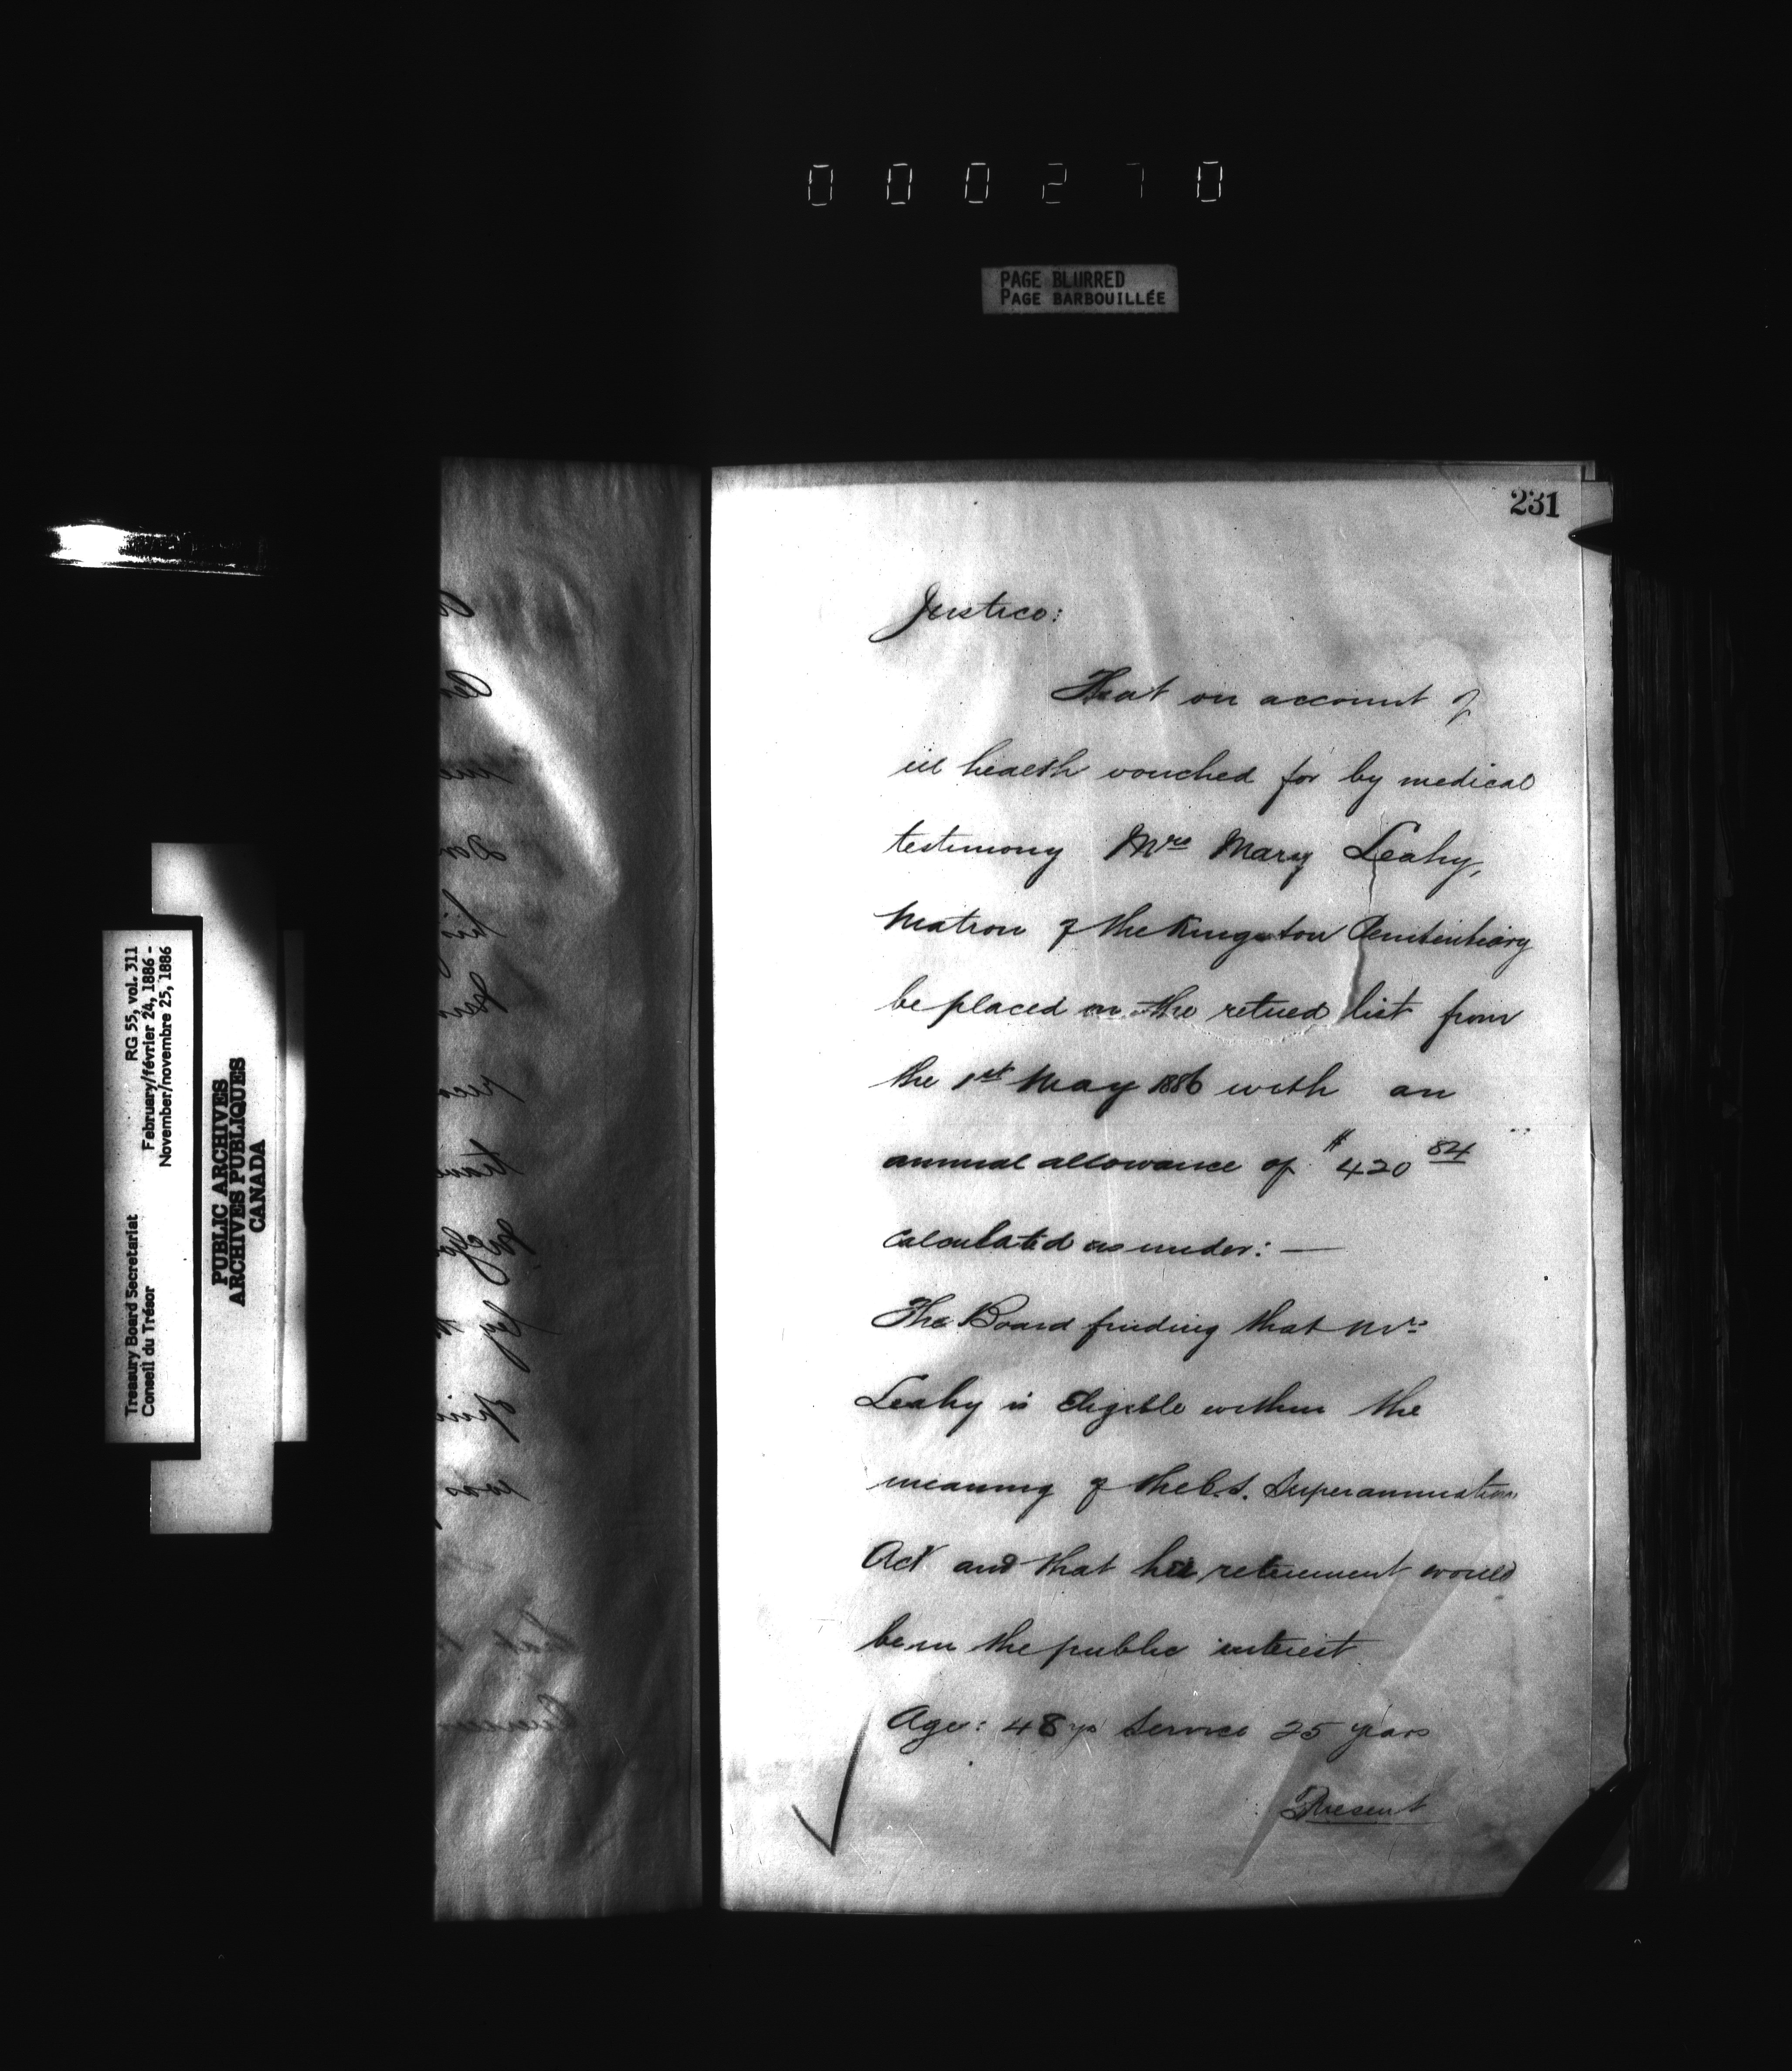 000270
PAGE BLURRED
PAGE BARBOUILLÉE
231
Justice:
That on account of
ill health vouched for by medical
testimony Mrs Mary Leahy,
Matron of the Kingston Penitentiary
be placed on the retired list from
the 1st May 1886 with an
annual allowance of $420 84
Calculated as under: —
The Board finding that Mrs
Leahy is Eligible within the
meaning of the C.S. Superannuation
Act and that her retirement would
be in the public interest
Age: 48 yrs Service 25 years
Present
Treasury Board Secretariat RG 55, vol. 311
Conseil du Trésor February/février 24, 1886 -
November/novembre 25, 1886
PUBLIC ARCHIVES
ARCHIVES PUBLIQUES
CANADA